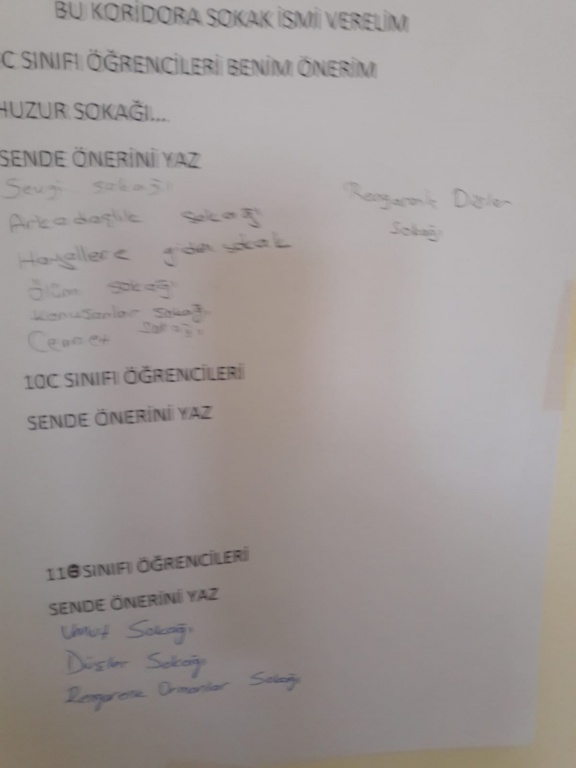 BU KORİDORA SOKAK İSMİ VERELİM
C SINIFI ÖĞRENCİLERİ BENİM ÖNERİM
HUZUR SOKAĞI...
SENDE ÖNERİNİ YAZ
Sevgi sokağı
Arkadaşlık sokağı
Hayallere giden sokak
Ölüm sokağı
Konuşanlar sokağı
Cennet sokağı
Rengarenk Düşler
Sokağı
10C SINIFI ÖĞRENCİLERİ
SENDE ÖNERİNİ YAZ
11B SINIFI ÖĞRENCİLERİ
SENDE ÖNERİNİ YAZ
Umut Sokağı
Düşler Sokağı
Rengarenk Ormanlar Sokağı